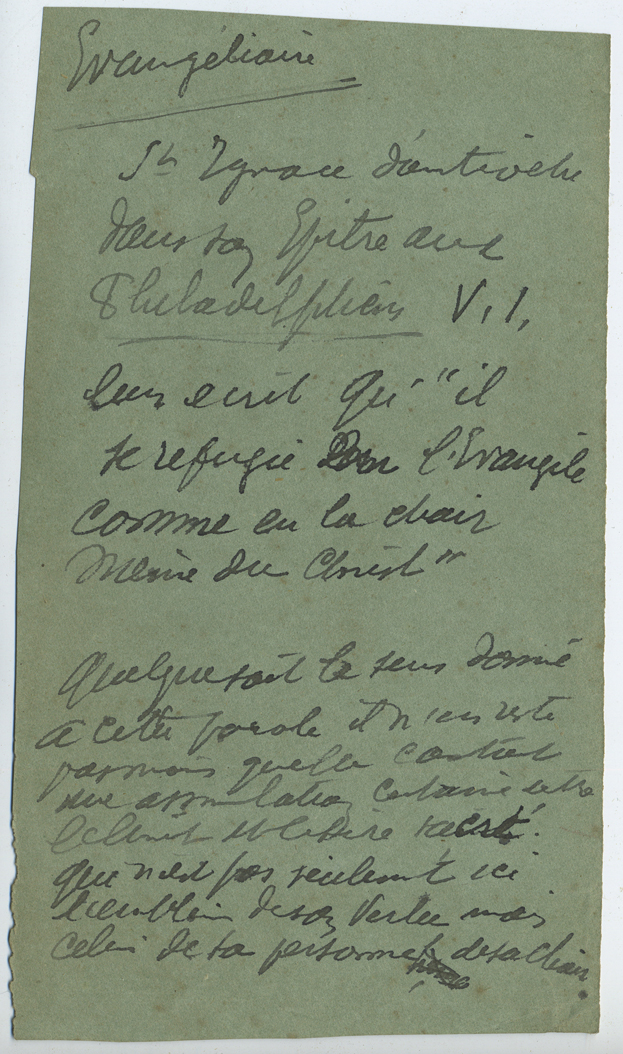 Evangéliaire
St Ignace d'antioche
dans son Epitre aux
Philadelphiens V. 1,
leur ecrit qu' "il
se refugie dans l'Evangile
comme en la chair
même du Christ"
Quelque soit le sens donné
a cette parole il n'en reste
pas moins quelle contient
une assimilation certaine entre
le Christ et le livre sacré.
qui n'est pas seulemt ici
l'emblème de son Verbe mais
celui de sa personne, de sa chair.